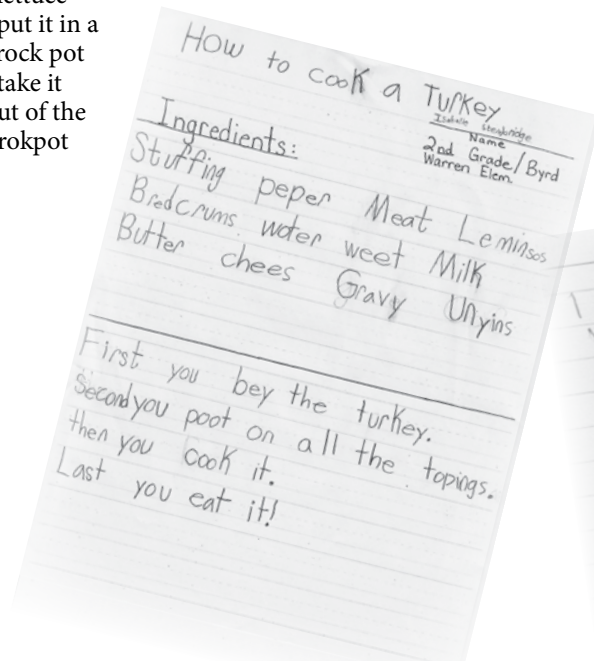 lettuce
put it in a
rock pot
take it
ut of the
rokpot
How to cook a Turkey
Name
2nd Grade/Byrd
Warren Elem.
Ingredients:
Stuffing peper Meat Lemin sos
Bredcrums water weet Milk
Butter chees Gravy Unyins
First you bey the turkey.
Second you poot on all the topings.
then you cook it.
Last you eat it!